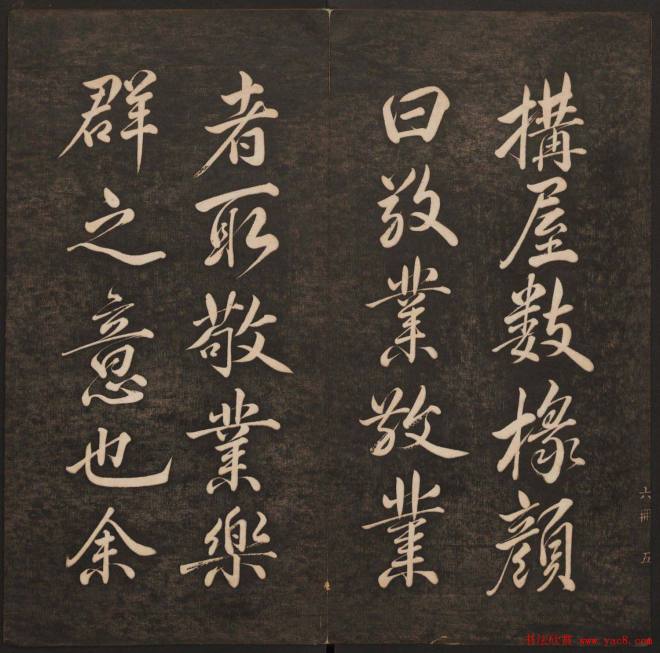 搆屋数椽顔
曰敬業敬業
者取敬業樂
群之意也余
六冊 五
书法欣赏 www.yac8.com